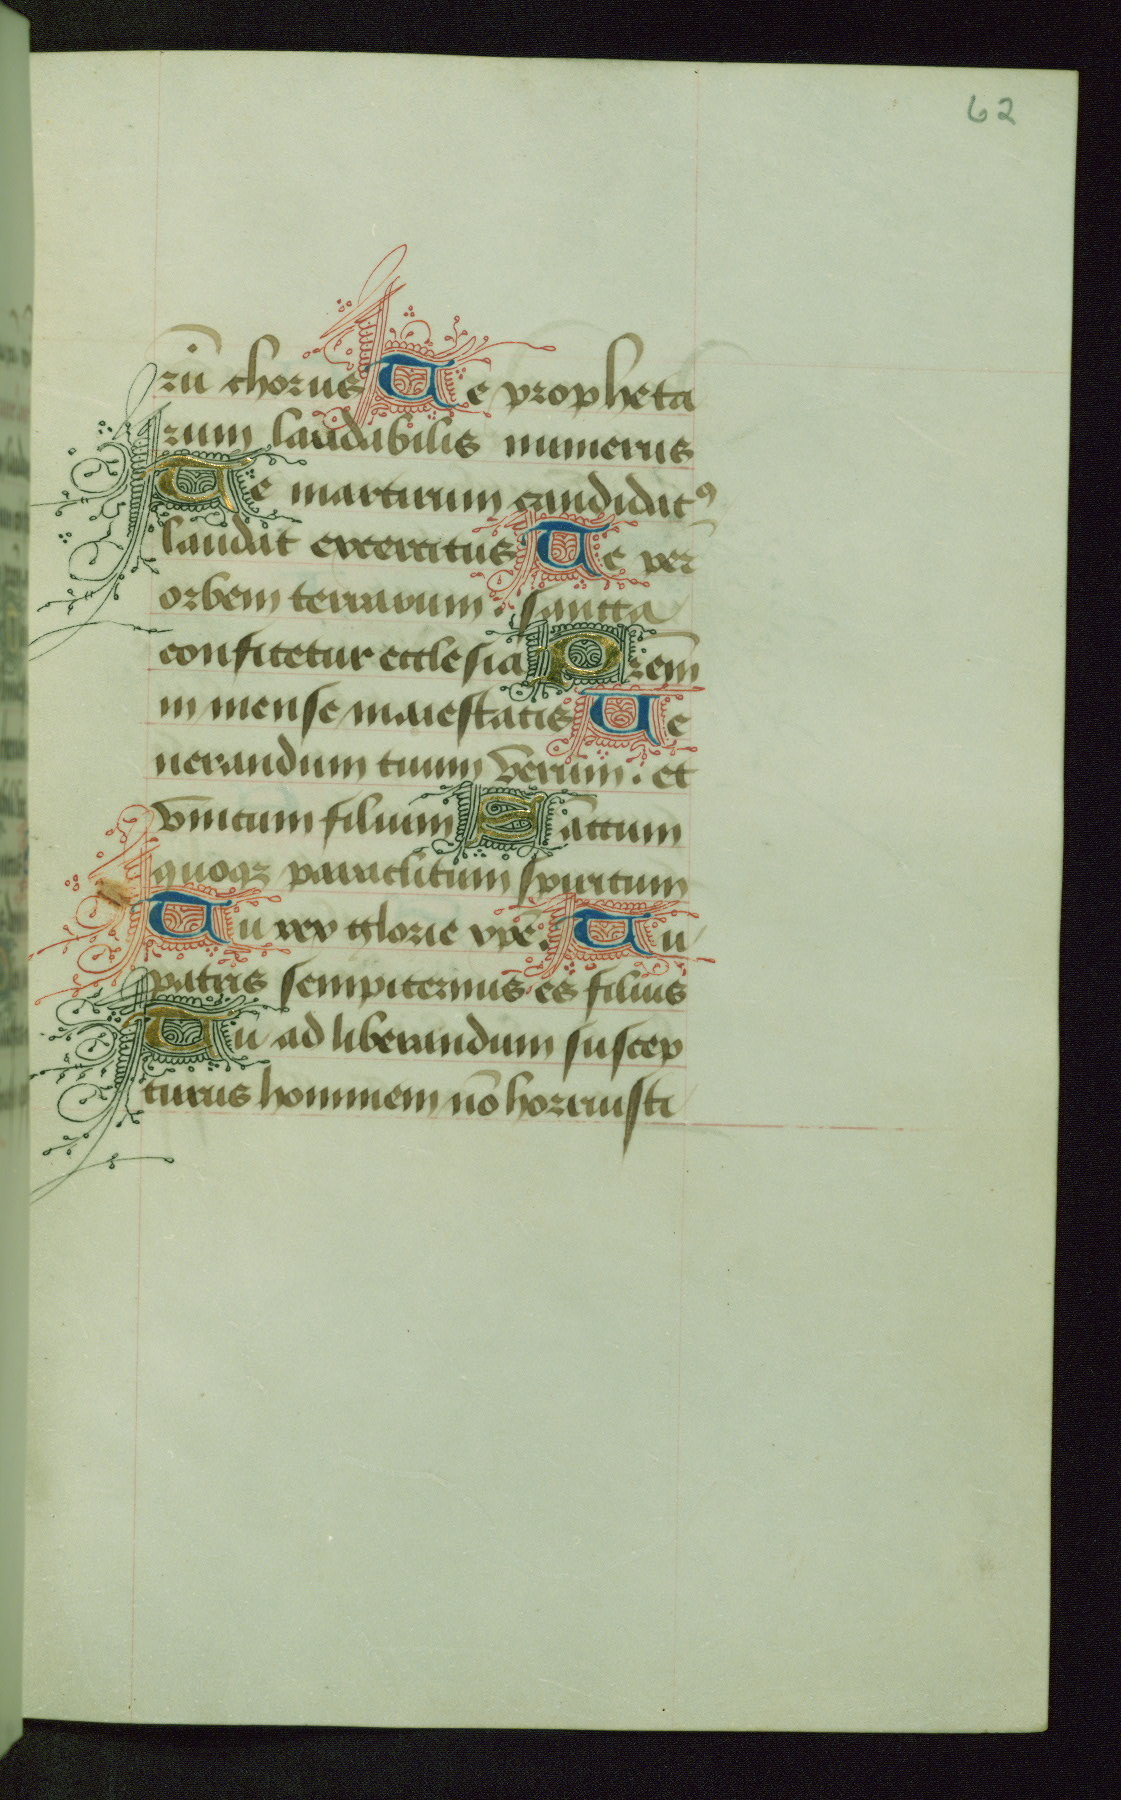 62
rū chorus Te propheta
rum laudabilis numerus
Te martirum candidatꝰ
laudat exercitus Te per
orbem terrarum . sancta
confitetur ecclesia Prēm
in mense maiestatis Ue
nerandum tuum verum . et
vnicum filium Sāctum
quoqꝫ paraclitum spiritum
Tu rex glorie xpē. Tu
patris sempiternus es filius
Tu ad liberandum suscep
turus hominem nō horruisti